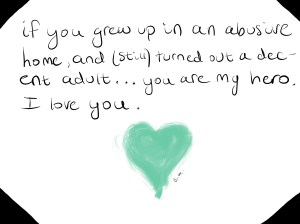 if you grew up in an abusive
home, and (still) turned out a dec-
ent adult... you are my hero.
I love you.